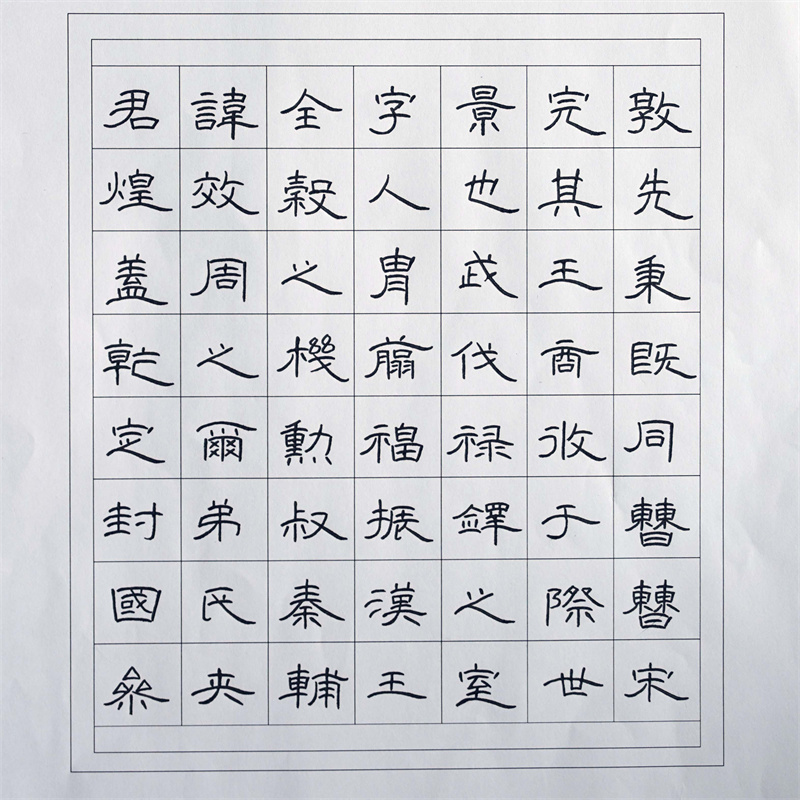 君諱全字景完敦
煌效穀人也其先
蓋周之胄武王秉
乾之機翦伐商既
定爾勳福禄攸同
封弟叔振鐸于曹
國氏秦漢之際曹
參夾輔王室世宋